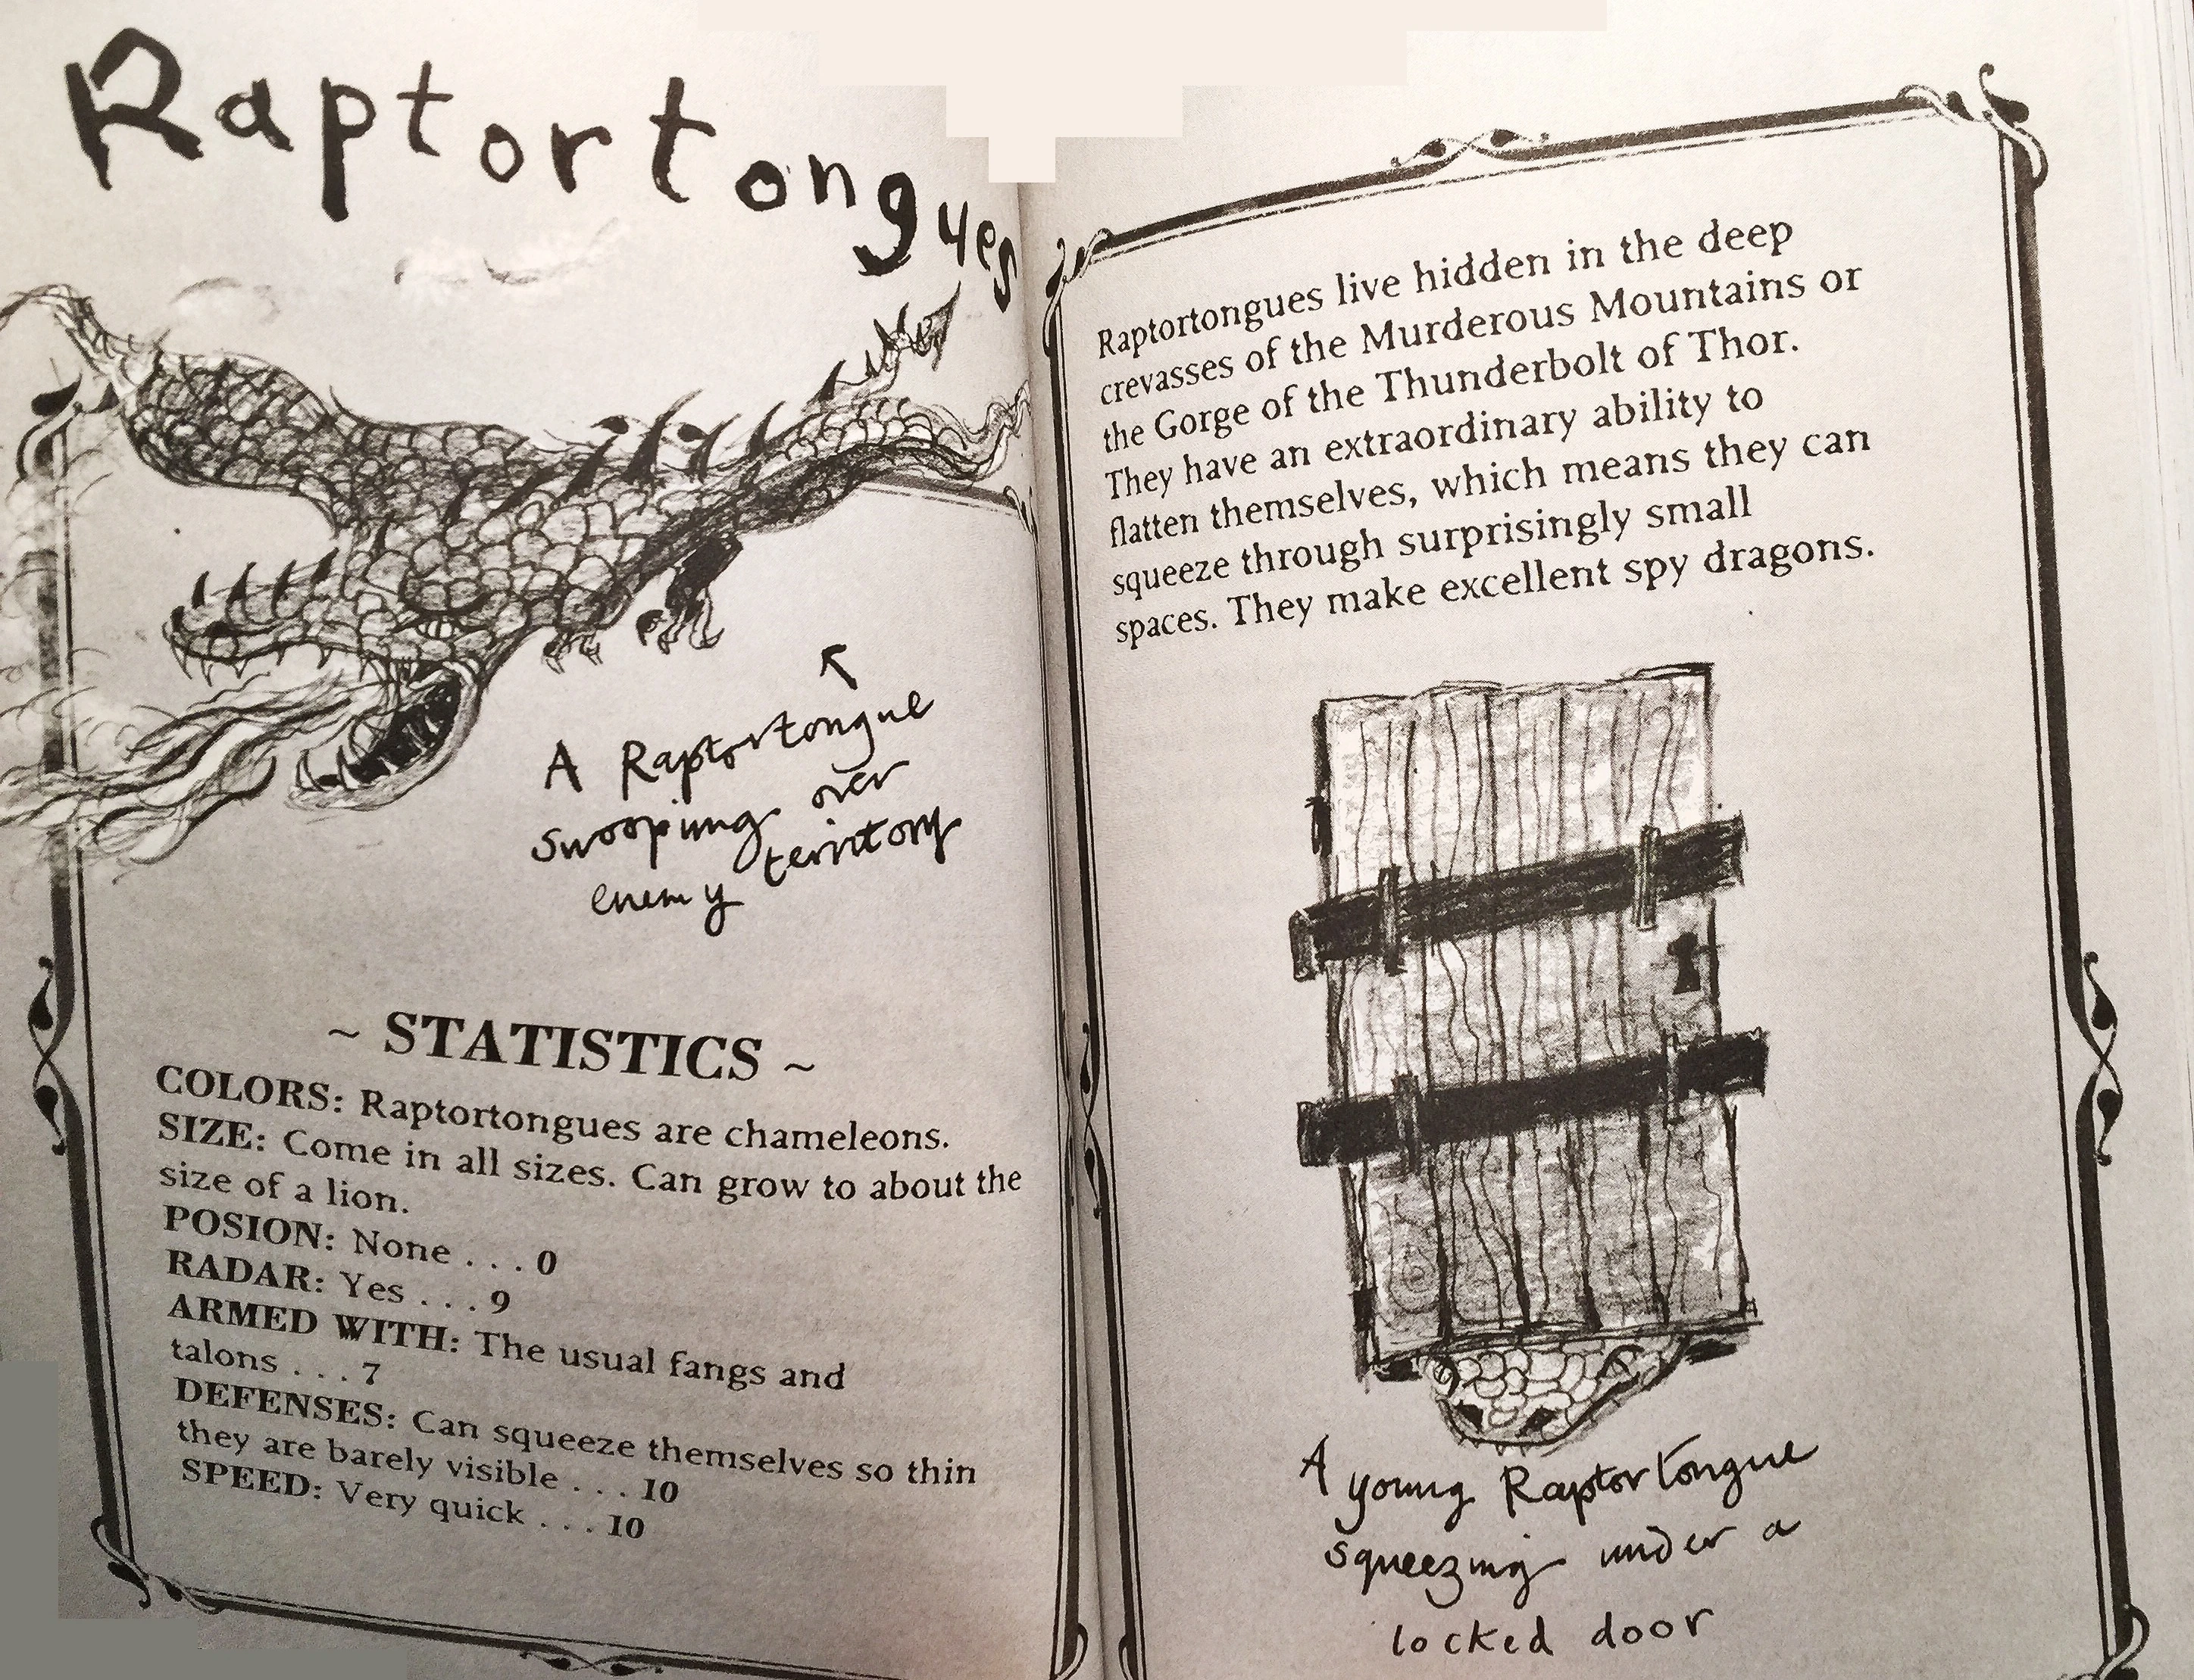 Raptortongues
A Raptortongue
swooping over
enemy territory
~ STATISTICS ~
COLORS: Raptortongues are chameleons.
SIZE: Come in all sizes. Can grow to about the
size of a lion.
POSION: None . . . 0
RADAR: Yes . . . 9
ARMED WITH: The usual fangs and
talons . . . 7
DEFENSES: Can squeeze themselves so thin
they are barely visible . . . 10
SPEED: Very quick . . . 10
Raptortongues live hidden in the deep
crevasses of the Murderous Mountains or
the Gorge of the Thunderbolt of Thor.
They have an extraordinary ability to
flatten themselves, which means they can
squeeze through surprisingly small
spaces. They make excellent spy dragons.
A young Raptortongue
squeezing under a
locked door